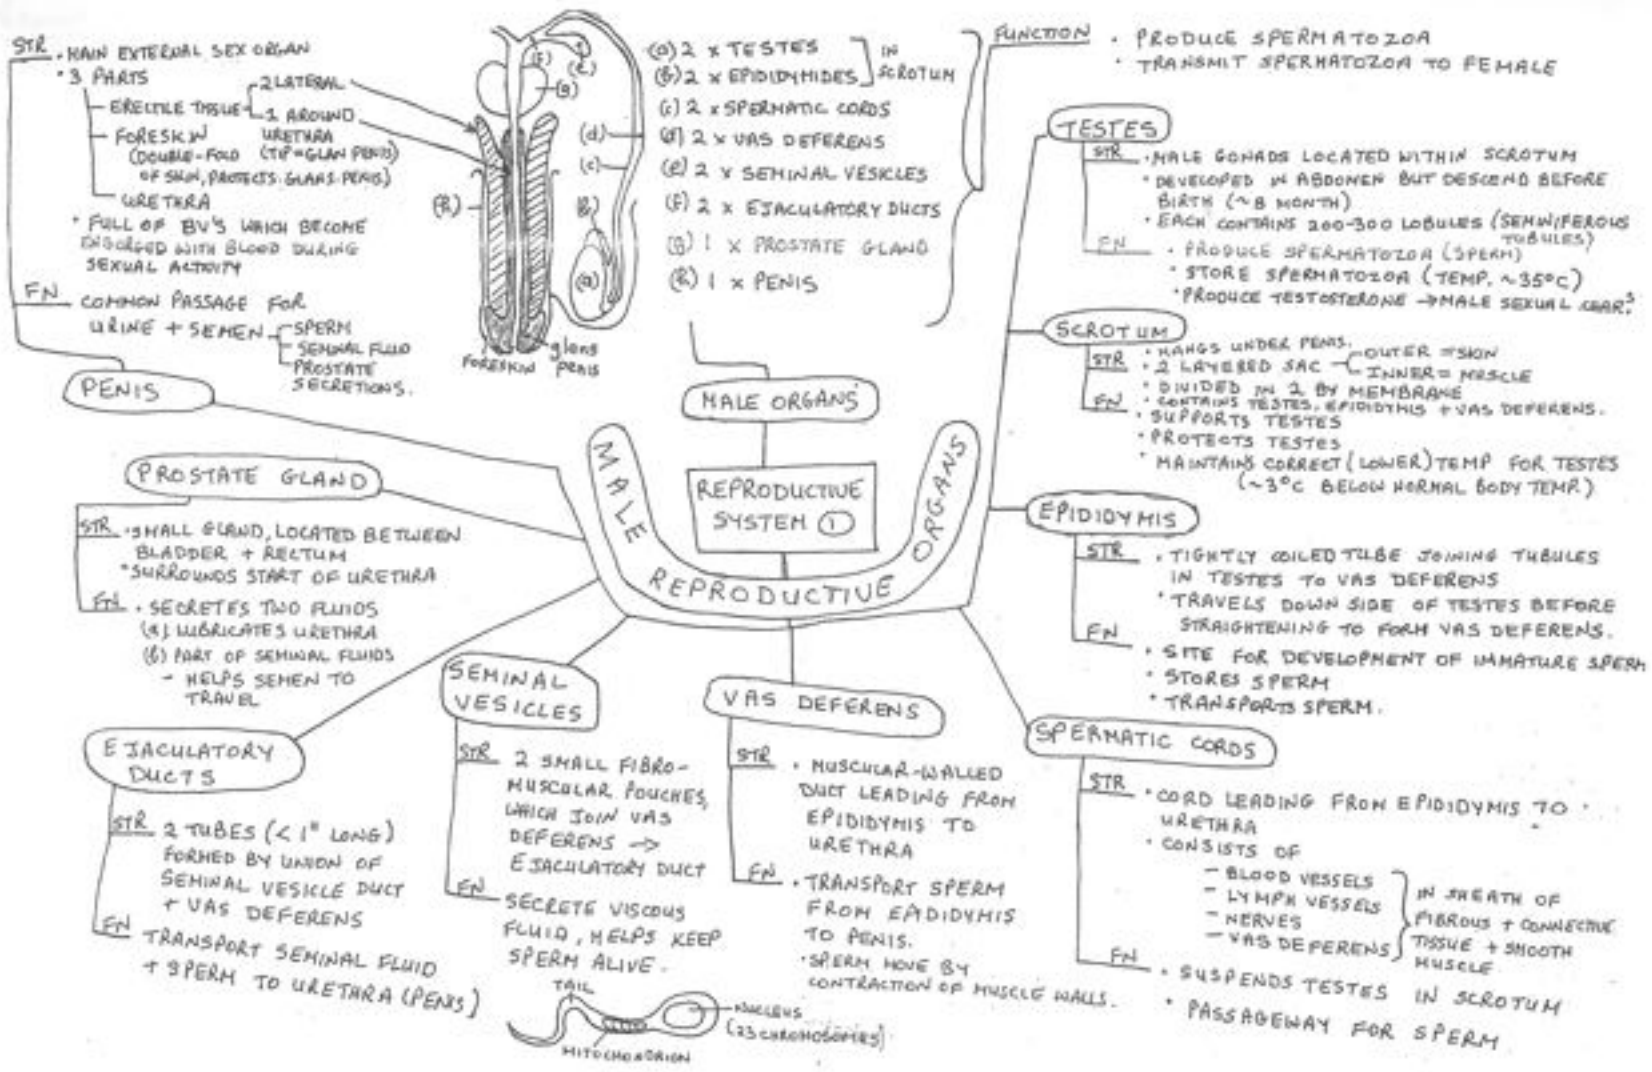 STR • MAIN EXTERNAL SEX ORGAN
• 3 PARTS
ERECTILE TISSUE
2 LATERAL
1 AROUND
URETHRA
(TIP = GLAN PENIS)
FORESKIN
(DOUBLE-FOLD
OF SKIN, PROTECTS GLANS PENIS)
URETHRA
• FULL OF BV'S WHICH BECOME
ENGORGED WITH BLOOD DURING
SEXUAL ACTIVITY
FN COMMON PASSAGE FOR
URINE + SEMEN
- SPERM
- SEMINAL FLUID
- PROSTATE
SECRETIONS.
PENIS
(f)
(e)
(g)
(d)
(c)
(h)
(b)
(a)
FORESKIN
glans
penis
(a) 2 x TESTES
(b) 2 x EPIDIDYMIDES
IN
SCROTUM
(c) 2 x SPERMATIC CORDS
(d) 2 x VAS DEFERENS
(e) 2 x SEMINAL VESICLES
(f) 2 x EJACULATORY DUCTS
(g) 1 x PROSTATE GLAND
(h) 1 x PENIS
FUNCTION • PRODUCE SPERMATOZOA
• TRANSMIT SPERMATOZOA TO FEMALE
MALE ORGANS
REPRODUCTIVE
SYSTEM 1
MALE REPRODUCTIVE ORGANS
TESTES
STR • MALE GONADS LOCATED WITHIN SCROTUM
• DEVELOPED IN ABDOMEN BUT DESCEND BEFORE
BIRTH (~8 MONTH)
• EACH CONTAINS 200-300 LOBULES (SEMINIFEROUS
TUBULES)
FN • PRODUCE SPERMATOZOA (SPERM)
• STORE SPERMATOZOA (TEMP. ~35°C)
• PRODUCE TESTOSTERONE → MALE SEXUAL CHAR.S
SCROTUM
STR • HANGS UNDER PENIS.
• 2 LAYERED SAC
OUTER = SKIN
INNER = MUSCLE
• DIVIDED IN 2 BY MEMBRANE
FN • CONTAINS TESTES, EPIDIDYMIS + VAS DEFERENS.
• SUPPORTS TESTES
• PROTECTS TESTES
• MAINTAINS CORRECT (LOWER) TEMP FOR TESTES
(~3°C BELOW NORMAL BODY TEMP.)
EPIDIDYMIS
STR • TIGHTLY COILED TUBE JOINING TUBULES
IN TESTES TO VAS DEFERENS
• TRAVELS DOWN SIDE OF TESTES BEFORE
STRAIGHTENING TO FORM VAS DEFERENS.
FN • SITE FOR DEVELOPMENT OF IMMATURE SPERM
• STORES SPERM
• TRANSPORTS SPERM.
SPERMATIC CORDS
STR • CORD LEADING FROM EPIDIDYMIS TO
URETHRA
• CONSISTS OF
- BLOOD VESSELS
- LYMPH VESSELS
- NERVES
- VAS DEFERENS
IN SHEATH OF
FIBROUS + CONNECTIVE
TISSUE + SMOOTH
MUSCLE
FN • SUSPENDS TESTES IN SCROTUM
• PASSAGEWAY FOR SPERM
PROSTATE GLAND
STR • SMALL GLAND, LOCATED BETWEEN
BLADDER + RECTUM
• SURROUNDS START OF URETHRA
FN • SECRETES TWO FLUIDS
(a) LUBRICATES URETHRA
(b) PART OF SEMINAL FLUIDS
- HELPS SEMEN TO
TRAVEL
EJACULATORY
DUCTS
STR 2 TUBES (< 1" LONG)
FORMED BY UNION OF
SEMINAL VESICLE DUCT
+ VAS DEFERENS
FN TRANSPORT SEMINAL FLUID
+ SPERM TO URETHRA (PENIS)
SEMINAL
VESICLES
STR 2 SMALL FIBRO-
MUSCULAR POUCHES,
WHICH JOIN VAS
DEFERENS →
EJACULATORY DUCT
FN SECRETE VISCOUS
FLUID, HELPS KEEP
SPERM ALIVE.
VAS DEFERENS
STR • MUSCULAR-WALLED
DUCT LEADING FROM
EPIDIDYMIS TO
URETHRA
FN • TRANSPORT SPERM
FROM EPIDIDYMIS
TO PENIS.
• SPERM MOVE BY
CONTRACTION OF MUSCLE WALLS.
TAIL
NUCLEUS
(23 CHROMOSOMES)
MITOCHONDRION